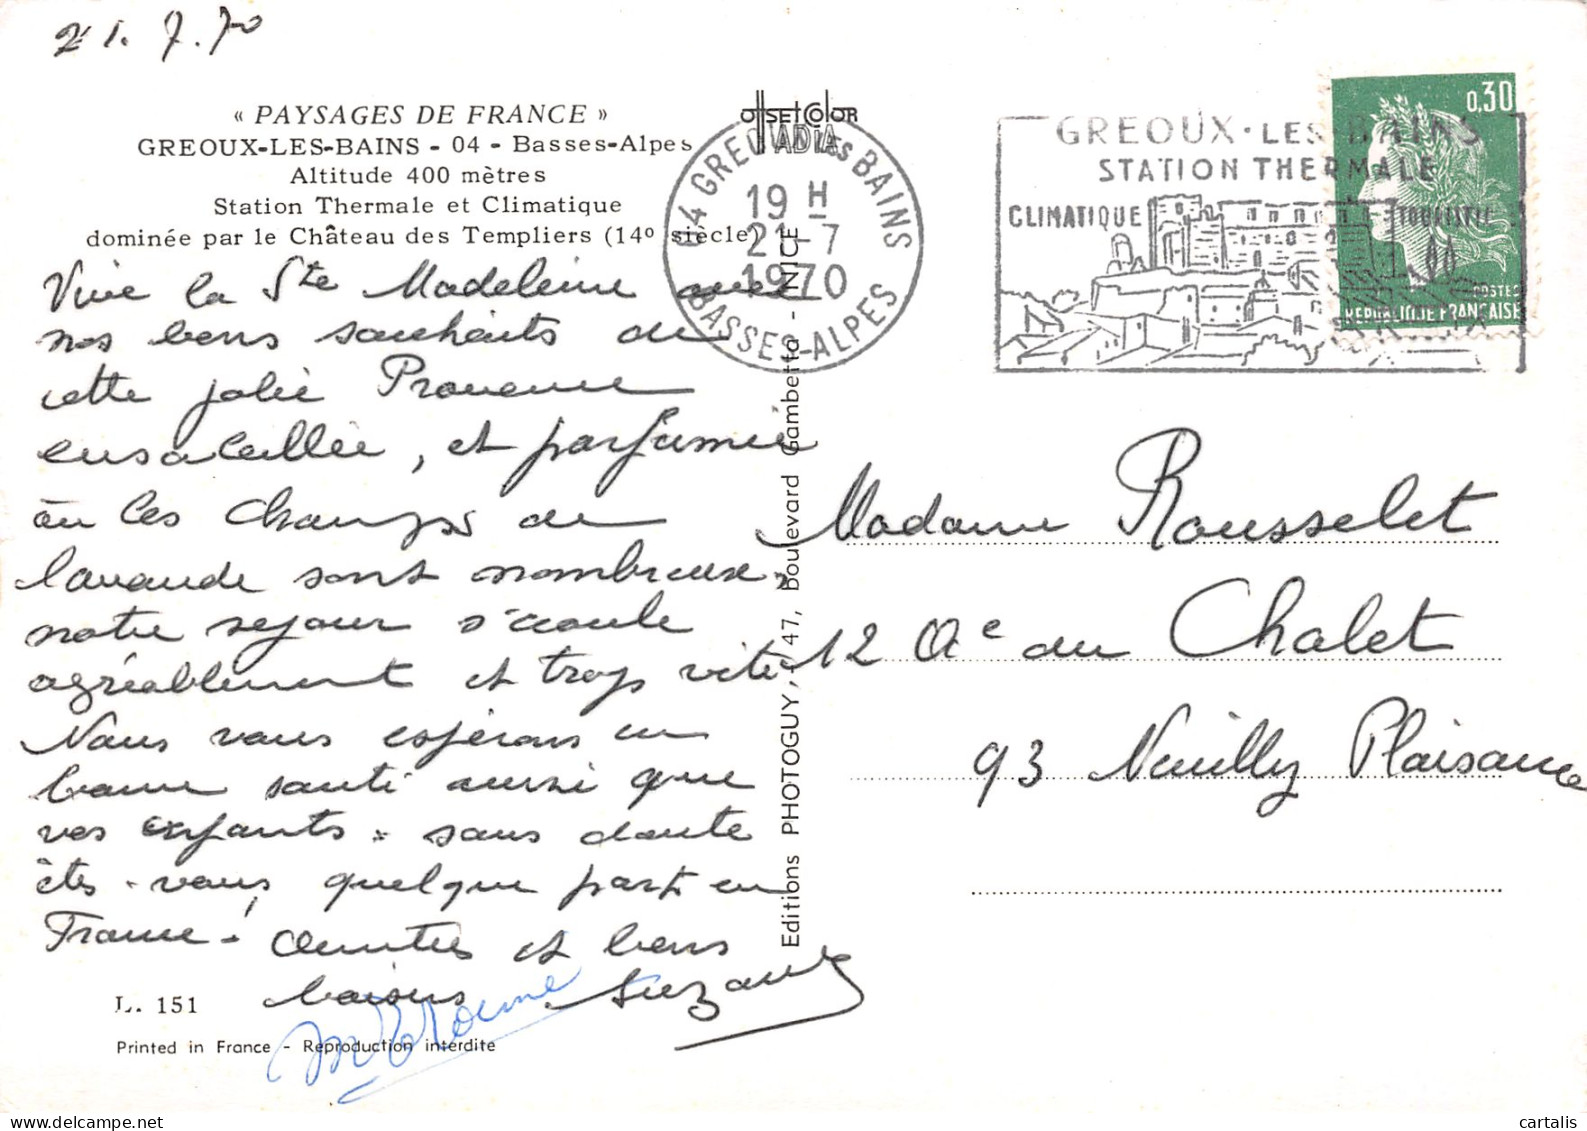 21.7.70
« PAYSAGES DE FRANCE »
GREOUX-LES-BAINS - 04 - Basses-Alpes
Altitude 400 mètres
Station Thermale et Climatique
dominée par le Château des Templiers (14º siècle)
Vive la Ste Madeleine avec
nos bons souhaits de
cette jolie Provence
ensoleillée, et parfumée
où les champs de
lavande sont nombreux,
notre sejour s'écoule
agréablement et trop vite
Nous vous espérons en
bonne santé ainsi que
vos enfants. sans doute
êtes-vous quelque part en
France! Amitiés et bons
baisers. Suzanne
L. 151
Printed in France - Reproduction interdite
OFFSETCOLOR
ADIA
Editions PHOTOGUY, 47, Boulevard Gambetta - NICE
04 GREOUX LES BAINS
19 H
21-7
1970
BASSES-ALPES
GREOUX-LES-BAINS
STATION THERMALE
CLIMATIQUE
0,30
POSTES
REPUBLIQUE FRANÇAISE
Madame Rousselet
12 Ae du Chalet
93 Neuilly Plaisance
cartalis